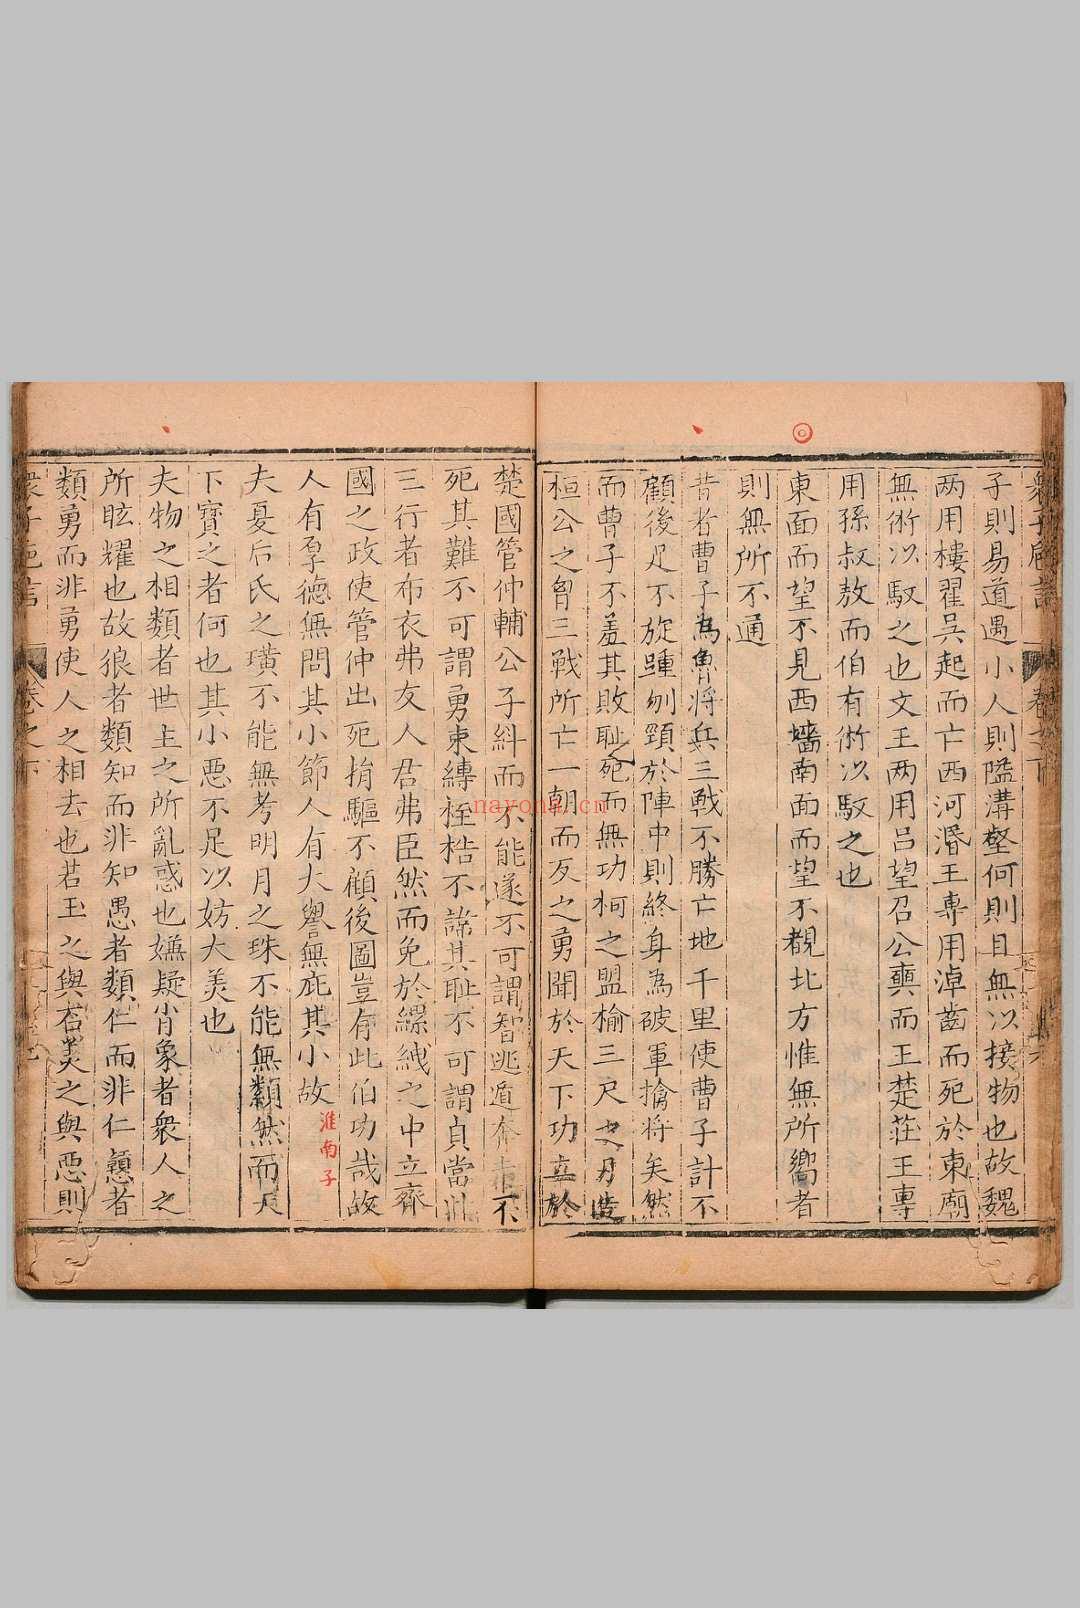 子則易道遇小人則隘溝壑何則目無以接物也故魏
两用樓翟吴起而亡西河湣王専用淖齒而死於東廟
無術以馭之也文王两用吕望召公奭而王楚莊王専
用孫叔敖而伯有術以馭之也
東面而望不見西墻南面而望不覩北方惟無所嚮者
則無所不通
昔者曹子為魯将兵三戰不勝亡地千里使曹子計不
顧後足不旋踵刎頸於陣中則終身為破軍擒将矣然
而曹子不羞其敗耻死而無功柯之盟揄三尺之刃造
桓公之胷三戦所亡一朝而反之勇聞於天下功立於
楚國管仲輔公子糾而不能遂不可謂智逃遁奔走不
死其難不可謂勇束縛桎梏不諱其耻不可謂貞當此
三行者布衣弗友人君弗臣然而免於縲絏之中立齊
國之政使管仲出死捐軀不顧後圖豈有此伯功哉故
人有厚德無問其小節人有大譽無疵其小故
淮南子
夫夏后氏之璜不能無考明月之珠不能無纇然而天
下寳之者何也其小惡不足以妨大美也
夫物之相類者世主之所亂惑也嫌疑肖象者衆人之
所眩耀也故狼者類知而非知愚者類仁而非仁戇者
類勇而非勇使人之相去也若玉之與石美之與惡則
卷之下
nayona.cn